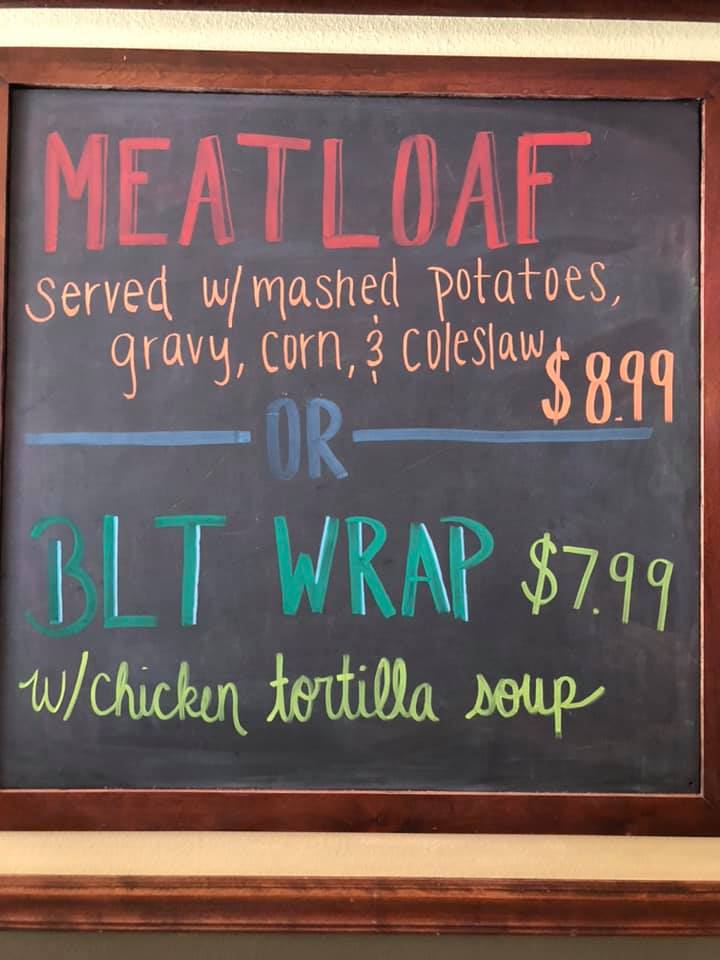 MEATLOAF
served w/ mashed potatoes,
gravy, corn, & coleslaw
$8.99
OR
BLT WRAP $7.99
w/ chicken tortilla soup